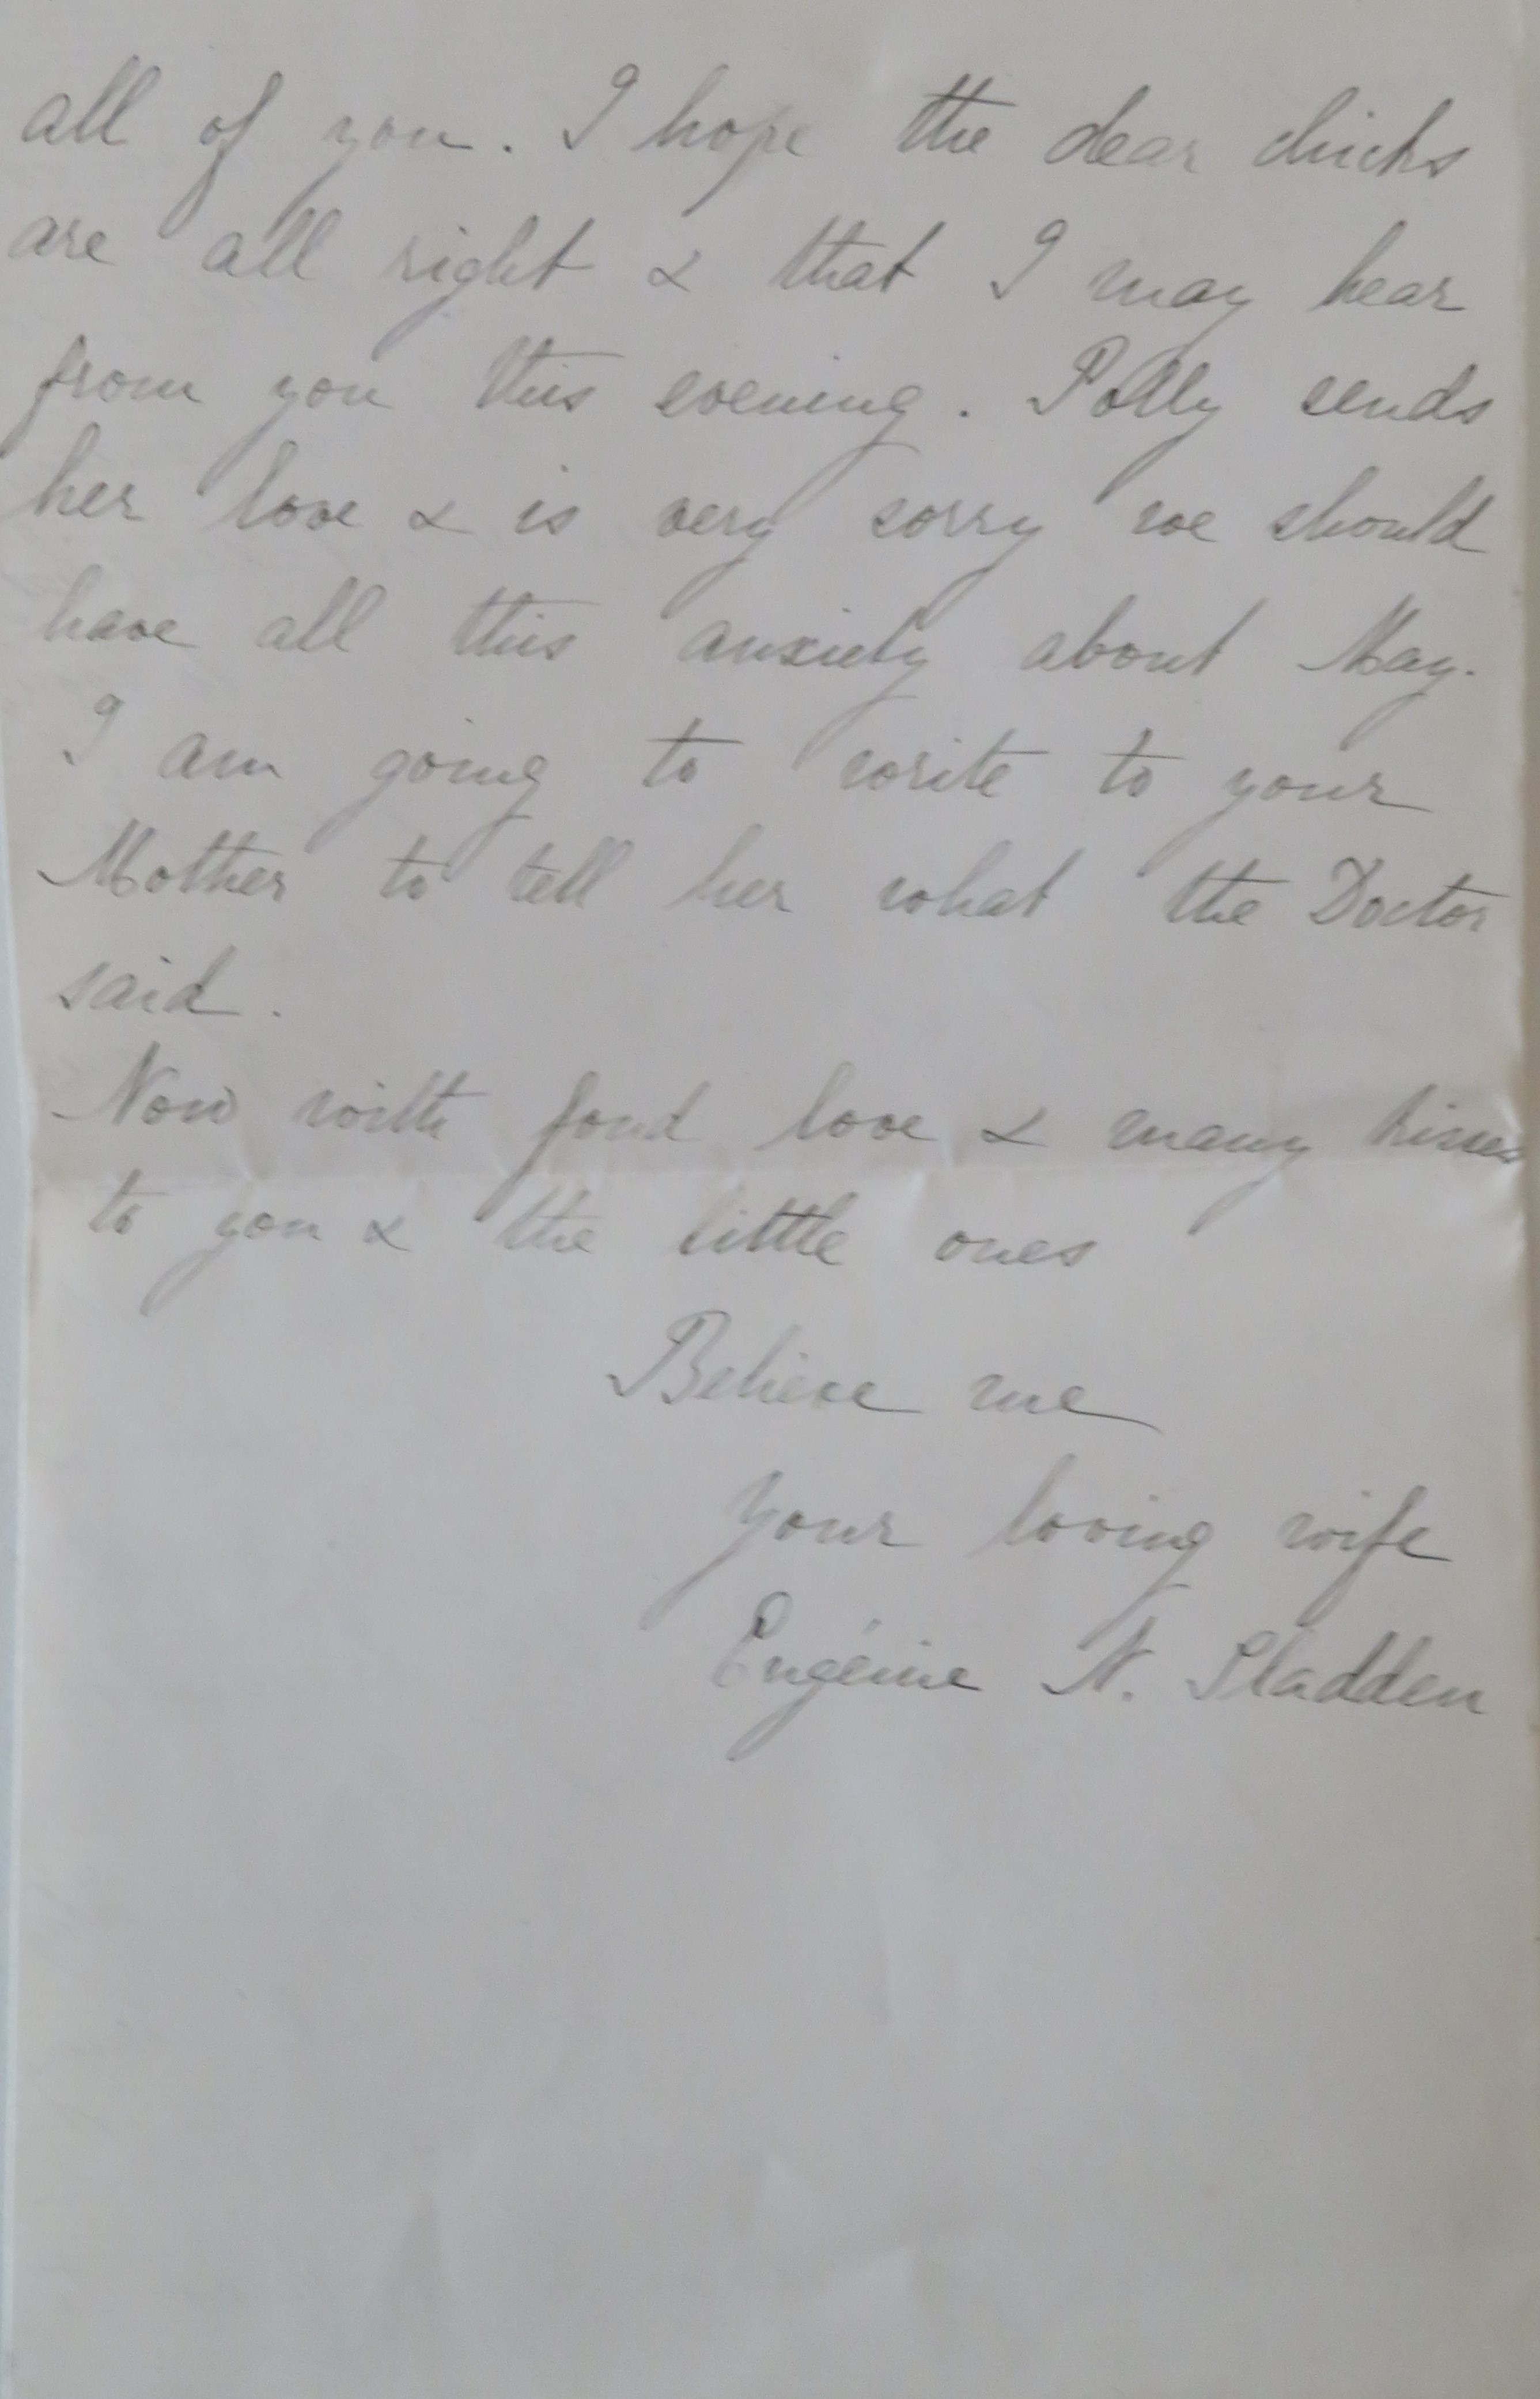 all of you. I hope the dear chicks
are all right & that I may hear
from you this evening. Polly sends
her love & is very sorry we should
have all this anxiety about May.
I am going to write to your
Mother to tell her what the Doctor
said.
Now with fond love & many kisses
to you & the little ones
Believe me
your loving wife
Eugénie N. Sladden